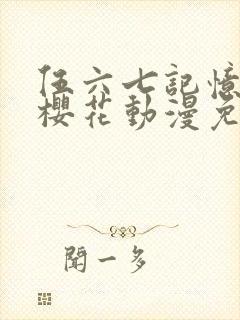 伍六七記憶
櫻花動漫免
聞一多